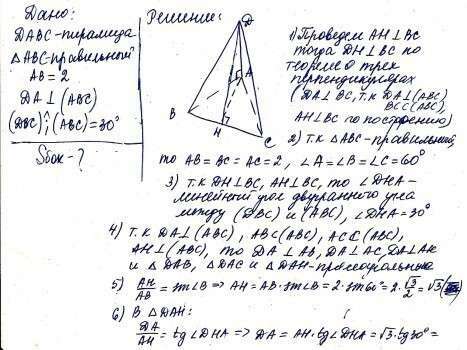 Дано:
DABC-пирамида
△ABC-правильный
AB = 2
DA ⊥ (ABC)
(DBC);^(ABC)=30°
Sбок - ?
Решение:
D
A
B
H
C
1) Проведем AH ⊥ BC
тогда DH ⊥ BC по
теореме о трех
перпендикулярах
(DA ⊥ BC, т.к DA ⊥ (ABC)
BC⊂(ABC),
AH ⊥ BC по построению)
2) т.к △ABC-правильный,
то AB = BC = AC = 2, ∠A = ∠B = ∠C = 60°
3) т.к DH ⊥ BC, AH ⊥ BC, то ∠DHA-
линейный угол двугранного угла
между (DBC) и (ABC), ∠DHA = 30°
4) т.к. DA ⊥ (ABC), AB⊂(ABC), AC⊂(ABC),
AH⊥(ABC), то DA ⊥ AB, DA ⊥ AC, DA ⊥ AH
и △DAB, △DAC и △DAH-прямоугольные
5) AH/AB = sin∠B => AH = AB·sin∠B = 2·sin60° = 2·√3/2 = √3
6) В △DAH:
DA/AH = tg∠DHA => DA = AH·tg∠DHA = √3·tg30° =